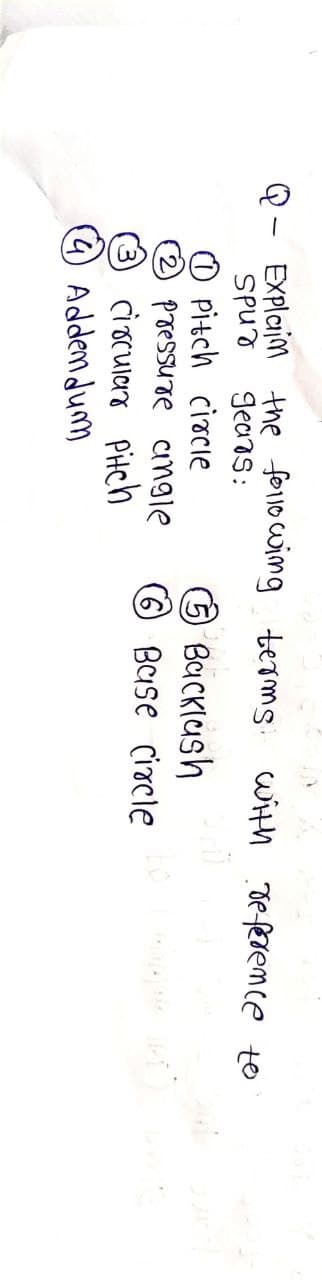 Q - Explain the following terms with reference to
spur gears:
① Pitch circle
② pressure angle
③ circular Pitch
④ Addendum
⑤ Backlash
⑥ Base circle